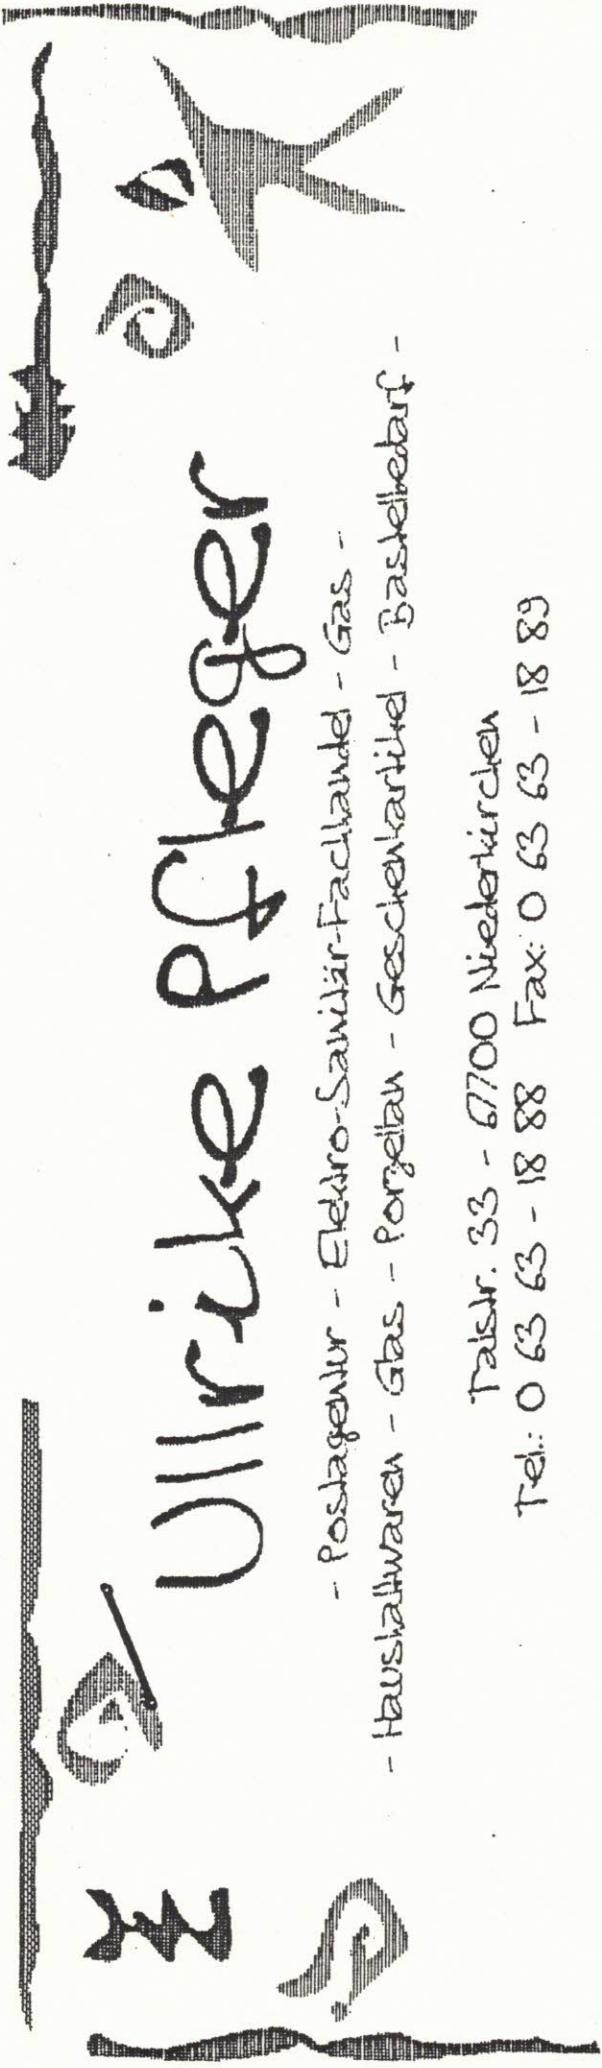 Ullrike Pfleger
- Postagentur - Elektro-Sanitär-Fachhandel - Gas -
- Haushaltwaren - Glas - Porzellan - Geschenkartikel - Bastelbedarf -
Talstr. 33 - 67700 Niederkirchen
Tel.: 0 63 63 - 18 88 Fax: 0 63 63 - 18 89